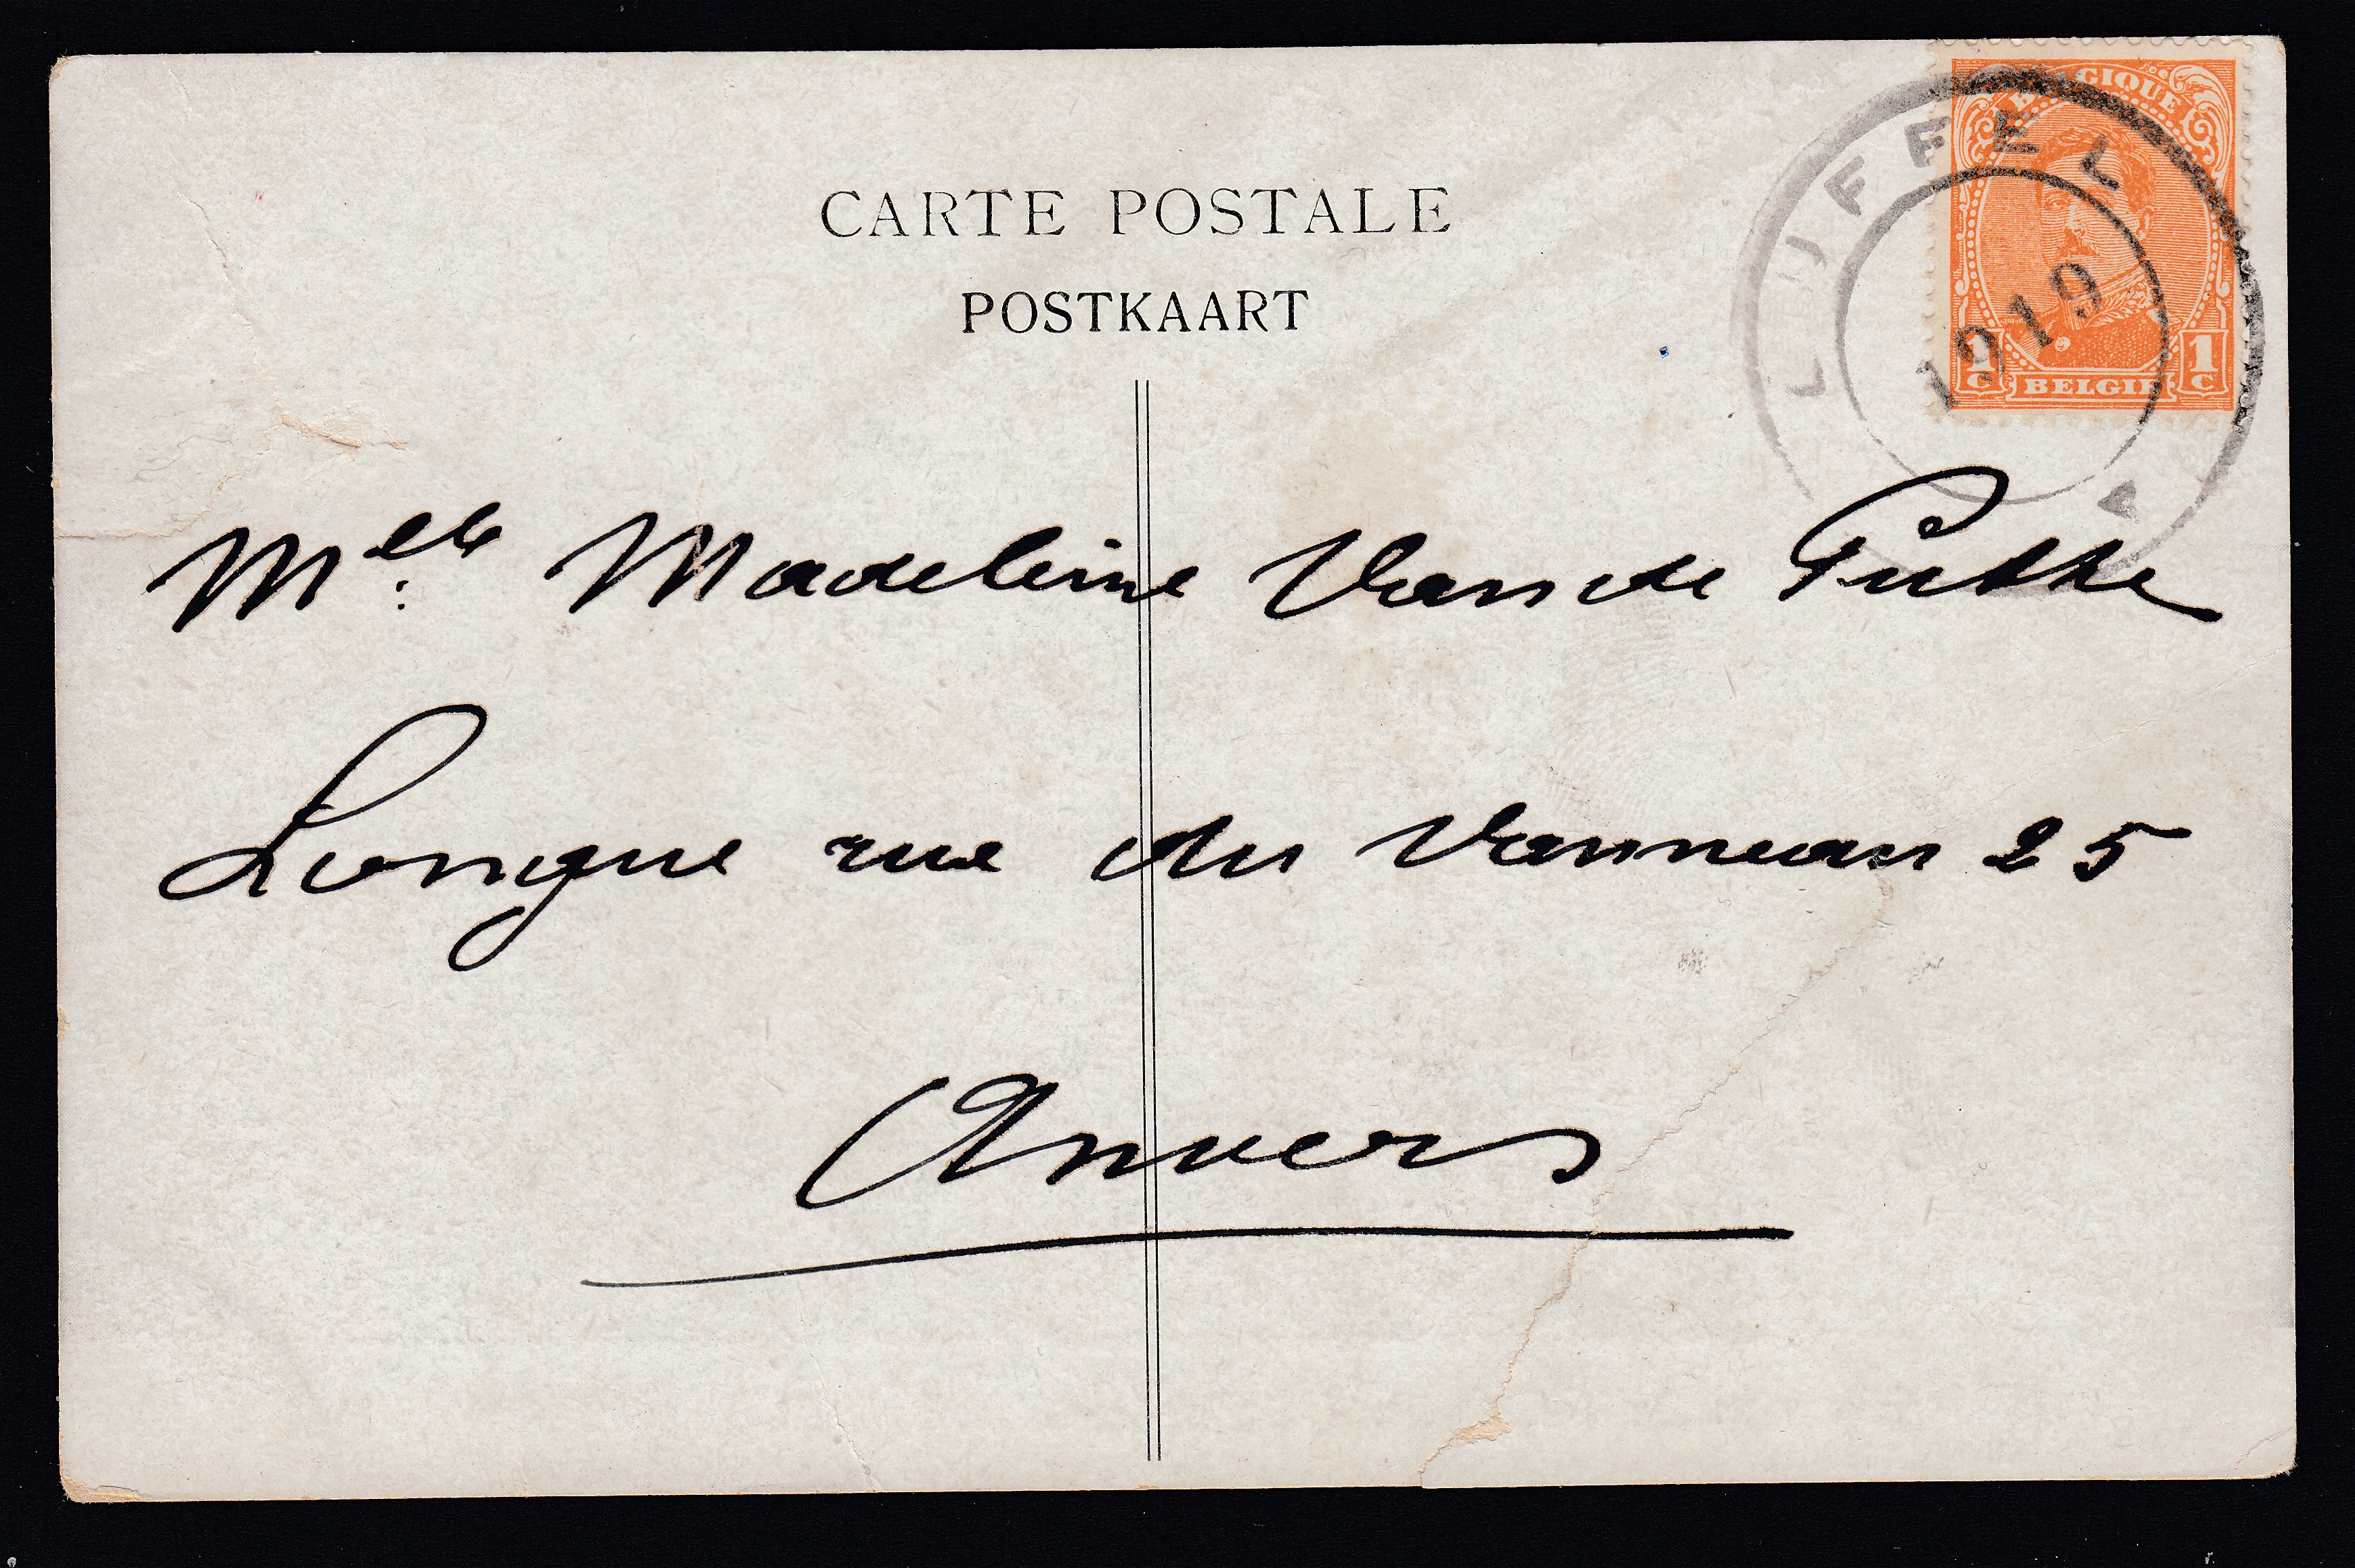 CARTE POSTALE
POSTKAART
BELGIQUE
1c BELGIE 1c
LUFFEL
1919
Mlle Madeleine Van de Putte
Longue rue du Vanneau 25
Anvers